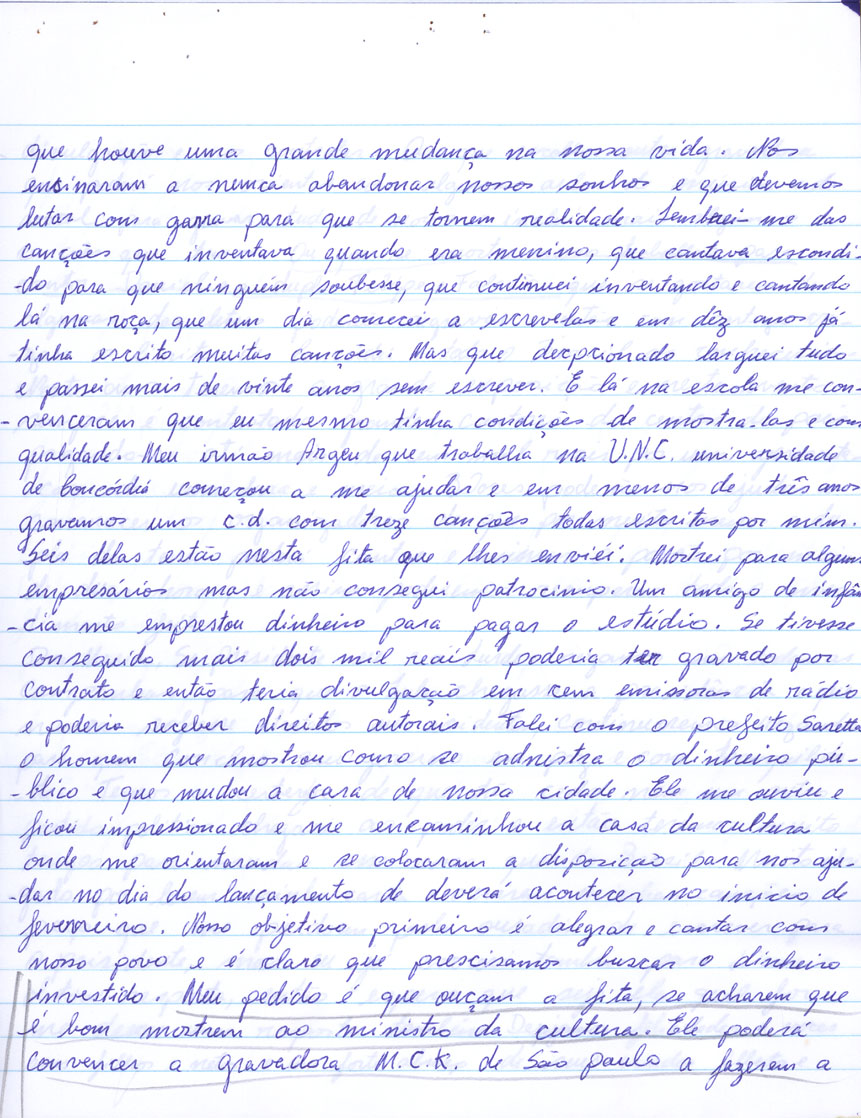 que houve uma grande mudança na nossa vida. Nos
ensinaram a nunca abandonar nossos sonhos e que devemos
lutar com garra para que se tornem realidade. Lembrei-me das
canções que inventava quando era menino, que cantava escondi-
-do para que ninguém soubesse, que continuei inventando e cantando
lá na roça, que um dia comecei a escrevelas e em dêz anos já
tinha escrito muitas canções. Mas que decpcionado larguei tudo
e passei mais de vinte anos sem escrever. E lá na escola me con-
-venceram que eu mesmo tinha condições de mostra-las e com
qualidade. Meu irmão Argeu que trabalha na U.N.C. universidade
de Concórdia começou a me ajudar e em menos de três anos
gravamos um c.d. com treze canções todas escritas por mim.
Seis delas estão nesta fita que lhes enviéi. Mostrei para alguns
empresários mas não consegui patrocinio. Um amigo de infân
-cia me emprestou dinheiro para pagar o estúdio. Se tivesse
conseguido mais dois mil reais poderia ter gravado por
contrato e então teria divulgação em cem emissoras de rádio
e poderia receber direitos autorais. Falei com o prefeito Saretta
o homem que mostrou como se adnistra o dinheiro pú-
-blico e que mudou a cara de nossa cidade. Ele me ouviu e
ficou impressionado e me encaminhou a casa da cultura
onde me orientaram e se colocaram a disposição para nos aju-
-dar no dia do lançamento de deverá acontecer no inicio de
fevereiro. Nosso objetivo primeiro é alegrar e cantar com
nosso povo e é claro que prescisamos buscar o dinheiro
investido. Meu pedido é que ouçam a fita, se acharem que
é bom mostrem ao ministro da cultura. Ele poderá
convencer a gravadora M.C.K. de São paulo a fazerem a